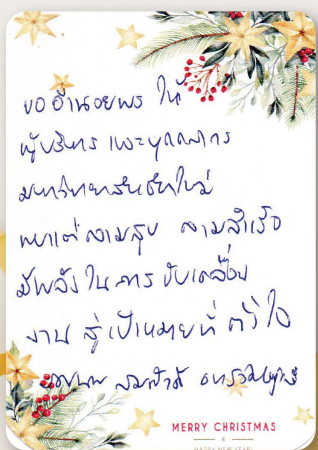 ขออำนวยพร ให้
ผู้บริหาร และบุคลากร
มหาวิทยาลัยเชียงใหม่
พบแต่ความสุข ความสำเร็จ
มีพลังในการ ขับเคลื่อน
งาน สู่เป้าหมายที่ ตั้งใจ
MERRY CHRISTMAS
&
HAPPY NEW YEAR!